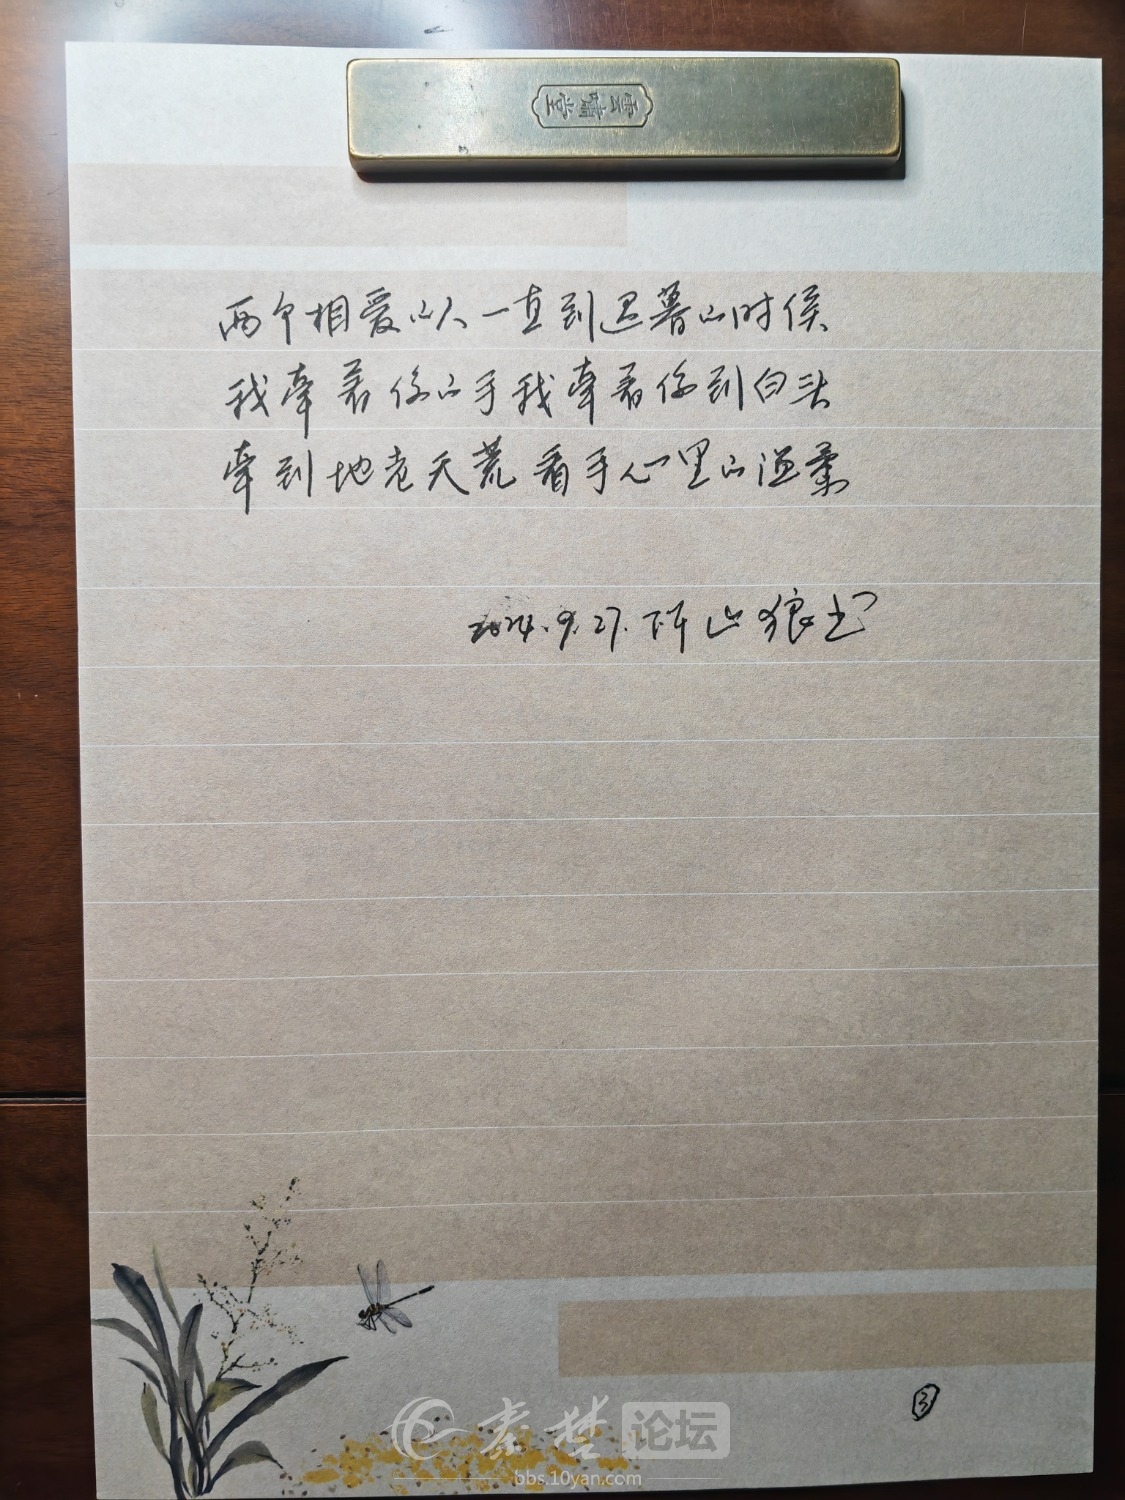 雲嘯堂
两个相爱的人一直到迟暮的时候
我牵着你的手我牵着你到白头
牵到地老天荒看手心里的温柔
2024.9.27. 山狼书
③
秦楚论坛
bbs.10yan.com